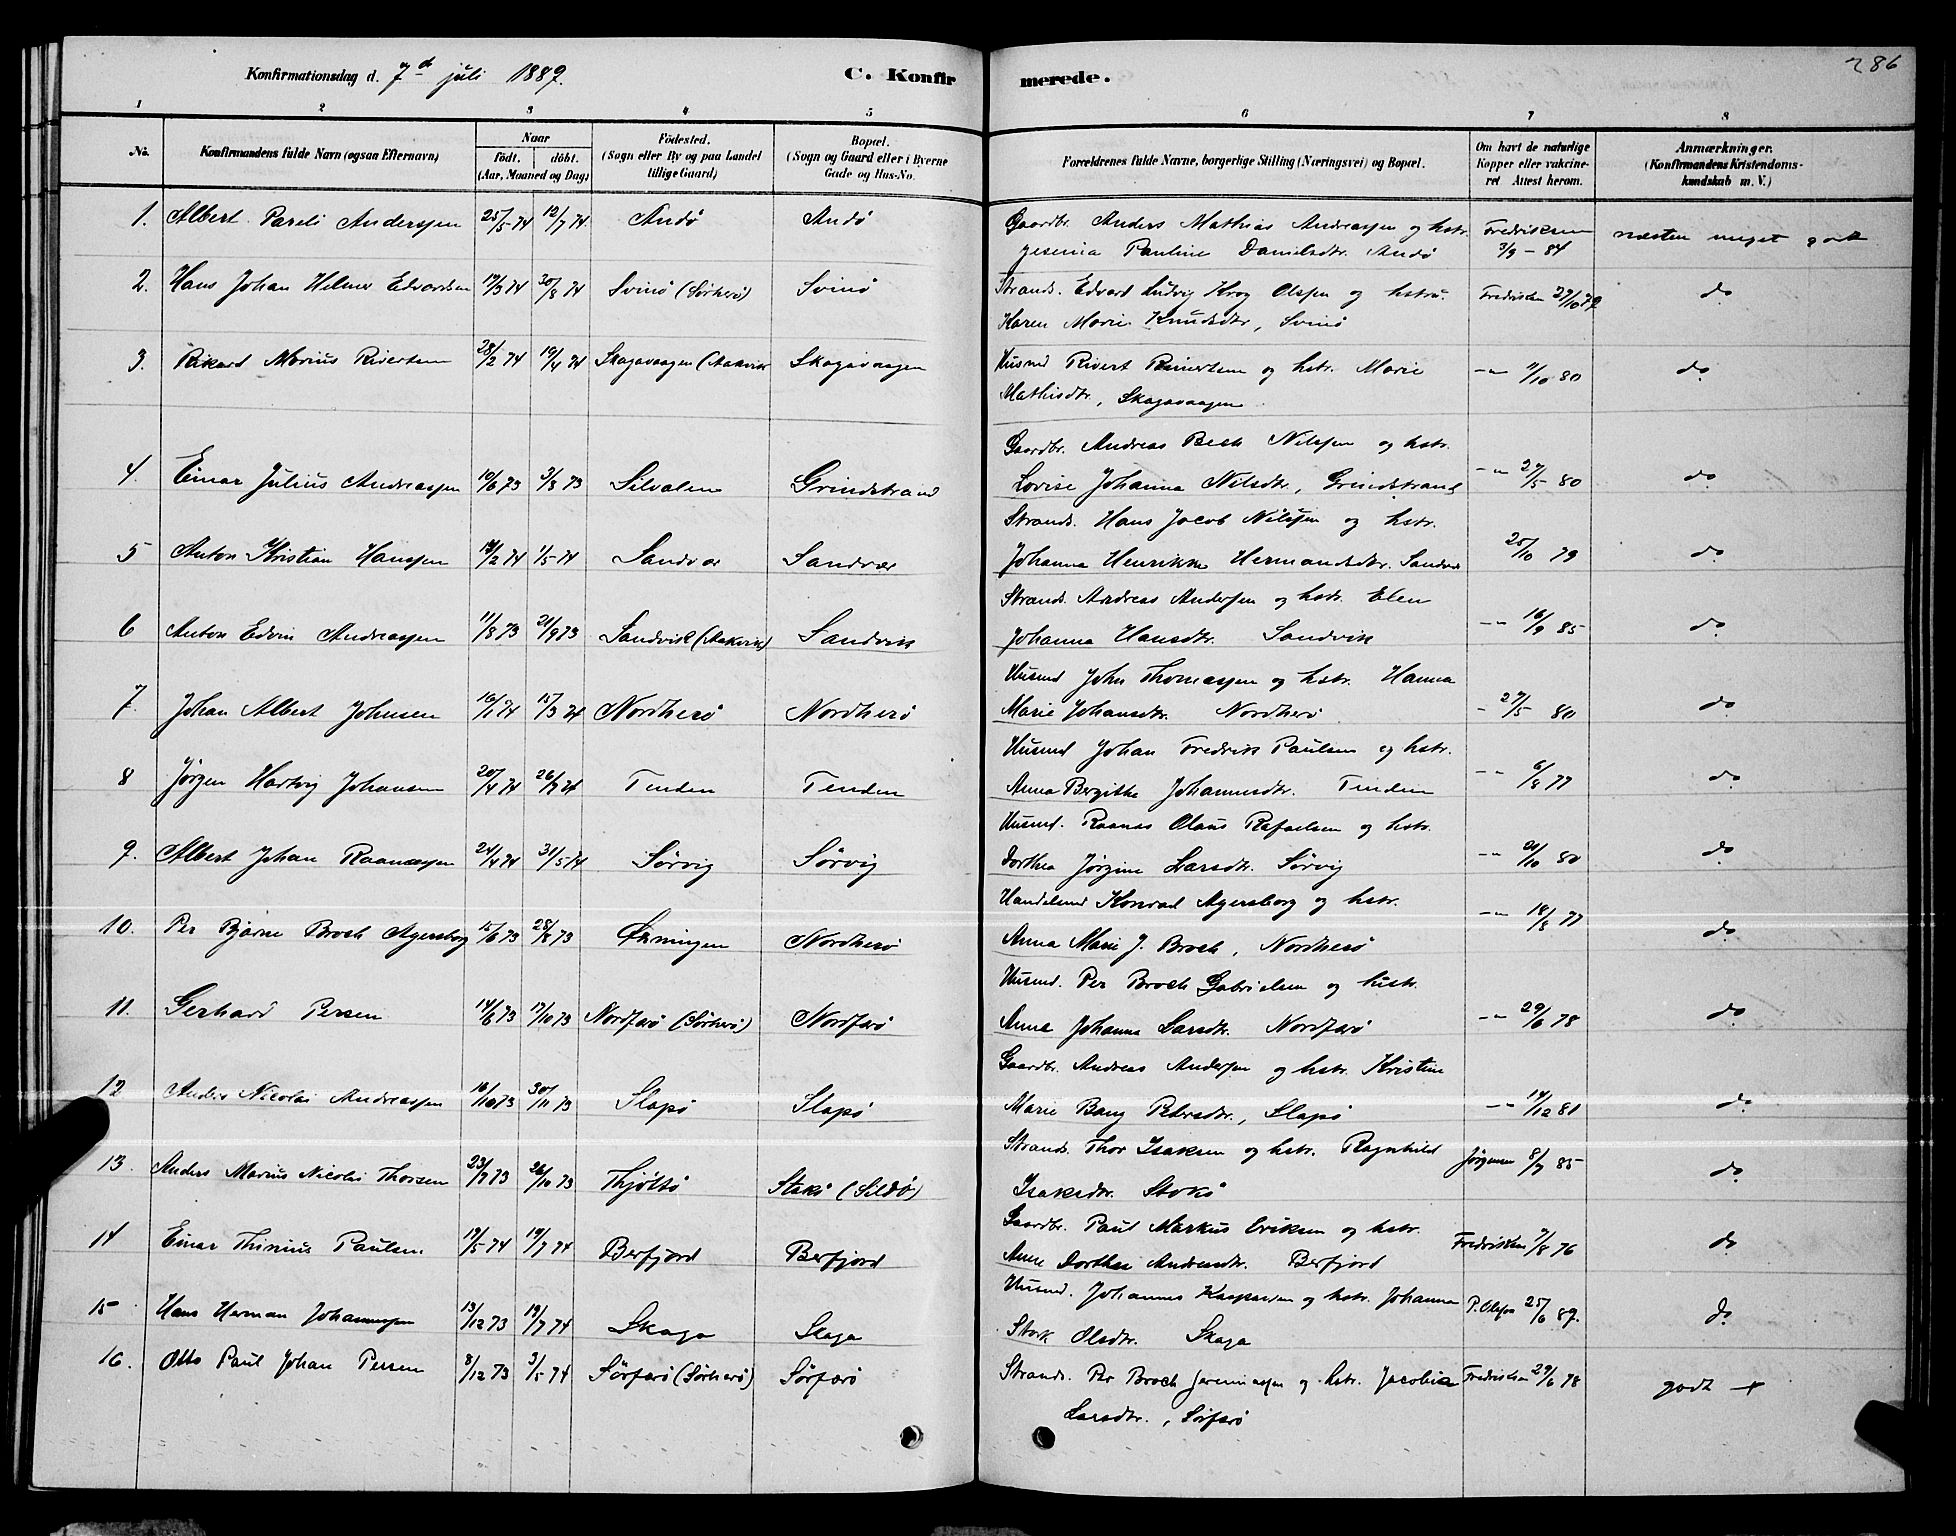 Konfirmationsdag d. 7d juli 1889.
C. Konfirmerede.
286
1 2 3 4 5 6 7 8
No. Konfirmandens fulde Navn (ogsaa Efternavn) Naar født. døbt. (Aar, Maaned og Dag) Fødested. (Sogn eller By og paa Landet tillige Gaard) Bopæl. (Sogn og Gaard eller i Byerne Gade og Hus-No. Forældrenes fulde Navne, borgerlige Stilling (Næringsvei) og Bopæl. Om havt de naturlige Kopper eller vakcineret Attest herom. Anmærkninger. (Konfirmandens Kristendomskundskab m. V.)
1. Albert Pareli Anderssen 25/5 74 12/7 74 Andø Andø Gaardbr. Anders Mathias Andreassen og hstr. Fredriksen næsten meget godt
Jesenia Pauline Danielsdtr. Andø 3/9 - 84
2. Hans Johan Helmer Edvardsen 19/3 74 30/8 74 Svinø (Sørherø) Svinø Strands. Edvard Ludvig Krog Olsen og hstru. Fredriksen 27/10 79 do
Karen Marie Knudsdtr, Svinø
3. Rikard Marius Rivertsen 28/2 74 19/4 74 Skagavaagen (Aakvik Skagavaagen Husmd Rivert Reinertsen og hstr. Marie -"- 11/10 80 do.
Mathisdtr, Skagavaagen
4. Einar Julius Andreassen 10/6 73 3/8 73 Silvalen Grindstrand Gaardbr. Andreas Bech Nilssen og hstr.
Lovise Johanna Nilsdtr, Grindstrand -"- 27/5 80 do
5 Anton Kristian Hanssen 14/2 74 1/5 74 Sandvær Sandvær Strands. Hans Jacob Nilssen og hstr.
Johanna Henrikke Hermandsdtr. Sandvær 25/10 79 do
6 Anton Edvin Andreassen 11/8 73 21/9 73 Sandvik (Aakvik) Sandvik Strands. Andreas Andersen og hstr. Elen
Johanna Hansdtr. Sandvik -"- 16/9 85 do
7. Johan Albert Johnsen 10/1 74 15/3 74 Nordherø Nordherø Husmd John Thomassen og hstr. Hanna
Marie Johansdtr. Nordherø - 27/5 80 do
8 Jørgen Hartvig Johansen 20/4 74 26/7 74 Tenden Tenden Husmd Johan Fredrik Paulsen og hstr.
Anna Bergitha Johannesdtr. Tenden -"- 6/8 77 do
9. Albert Johan Raanassen 24/4 74 31/5 74 Sørvig Sørvig Husmd. Raanas Olaus Rafaelsen og hstr.
Dorthea Jørgine Larsdtr. Sørvig -"- 21/10 80 do
10. Per Bjarne Broch Agersborg 15/6 73 28/8 73 Øxningen Nordherø Handelsmd Konrad Agersborg og hstr. -"- 18/8 77
Anna Marie J. Broch, Nordherø do
11. Gerhard Persen 14/6 73 17/10 73 Nordfærø (Sørherø) Nordfærø Husmd. Per Broch Gabrielsen og hustr.
Anna Johanna Larsdtr. Nordfærø -"- 29/6 78 do
12 Anders Nicolai Andreassen 16/10 73 30/11 73 Slapø Slapø Gaardbr. Andreas Andersen og hstr. Kristine
Marie Bang Petersdtr., Slapø -"- 14/12 81 do.
13. Anders Marius Nicolai Thorsen 23/7 73 26/10 73 Thjøttø Stokø (Sildø) Strands. Thor Isaksen og hstr. Ragnhild Jørgensen 8/7 85 do
Isaksdtr. Stokø
14 Einar Thinius Paulsen 19/5 74 19/7 74 Berfjord Berfjord Gaardbr. Paul Markus Eriksen og hstr. Fredriksen 7/8 76 do
Anne Dorthea Andersdtr. Berfjord
15 Hans Herman Johannessen 13/12 73 19/7 74 Skaga Skaga Husmd. Johannes Kaspersen og hstr. Johanna P. Olsen 25/6 89. do
Stork Olsdtr. Skaga
16. Otto Paul Johan Persen 8/12 73 3/5 74 Sørfærø (Sørherø) Sørfærø Strands. Per Broch Jeremiassen og hstr. Jacobia Fredriksen 29/6 78 godt +
Larsdtr., Sørfærø